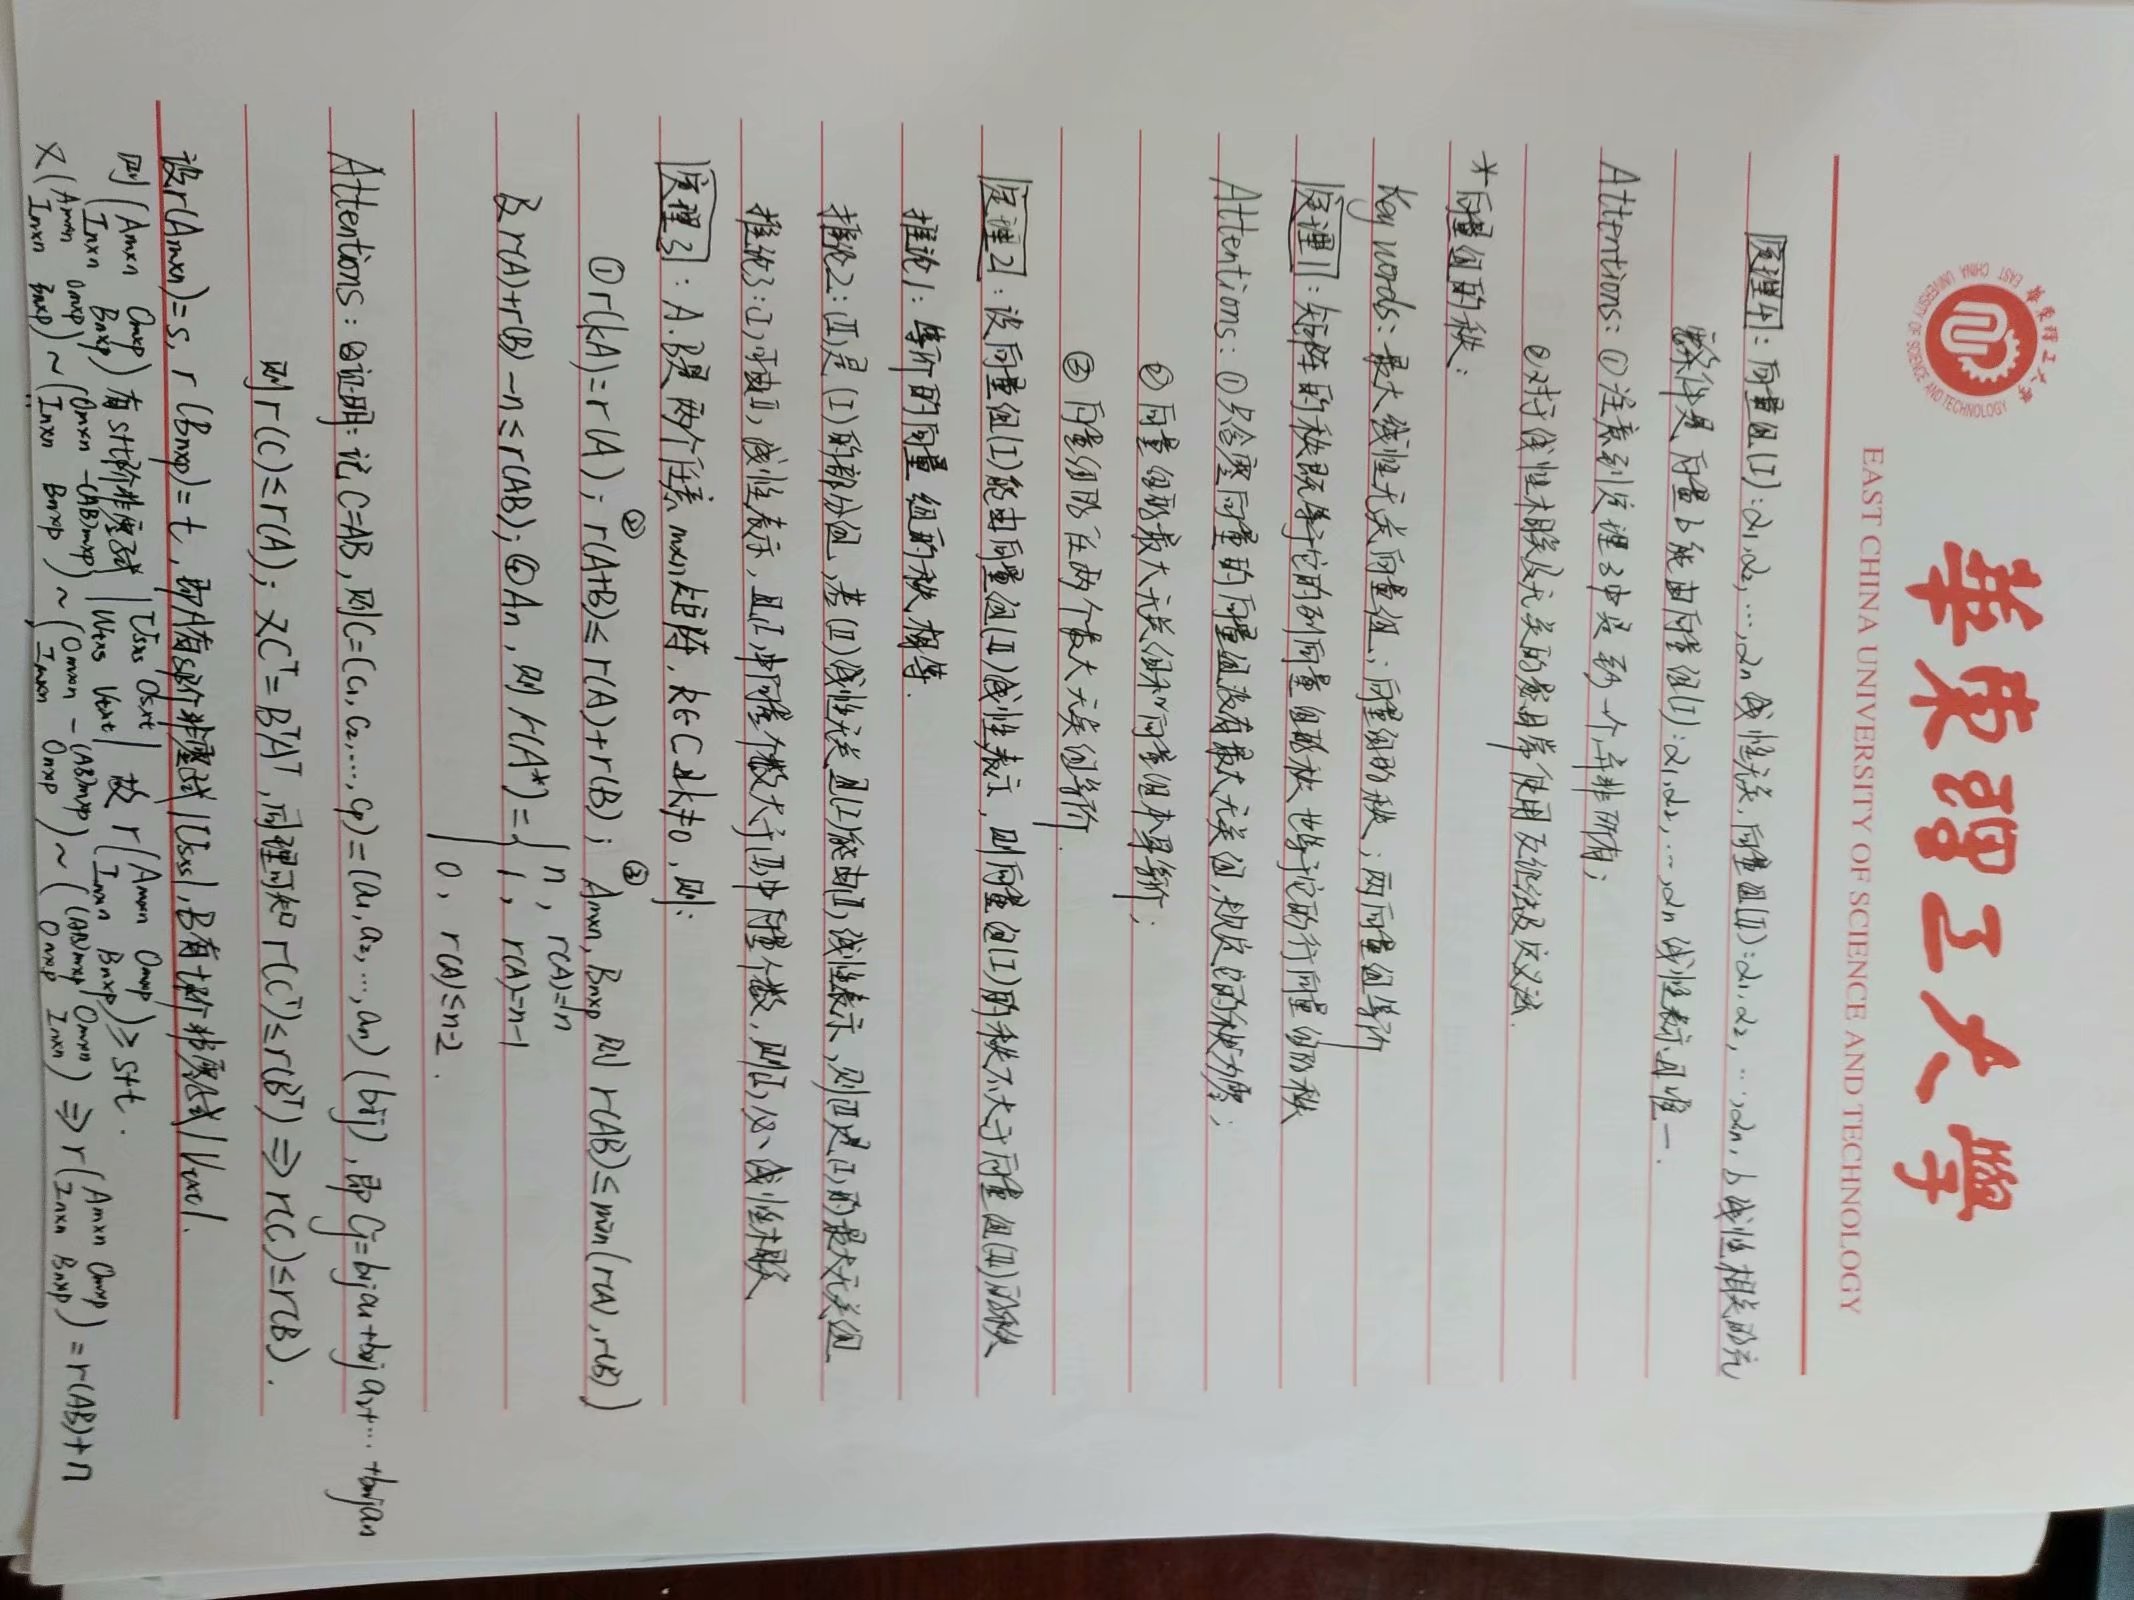 華東理工大學
EAST CHINA UNIVERSITY OF SCIENCE AND TECHNOLOGY
定理4：向量组(I)：α1,α2,…,αn线性无关，向量组(II)：α1,α2,…,αn,b线性相关的充
要条件是向量b能由向量组(I)：α1,α2,…,αn线性表示且唯一.
Attentions：①注意到定理3中是至少一个并非所有；
②对于线性相关及无关的题目常使用反证法及定义法.
*向量组的秩：
Key words：最大线性无关向量组；向量组的秩；两向量组等价
定理1：矩阵的秩既等于它的列向量组的秩也等于它的行向量组的秩
Attentions：①只含零向量的向量组没有最大无关组，规定它的秩为零；
②向量组的最大无关组和向量组本身等价；
③向量组的任两个最大无关组等价.
定理2：设向量组(I)能由向量组(II)线性表示，则向量组(I)的秩不大于向量组(II)的秩
推论1：等价的向量组的秩相等.
推论2：(II)是(I)的部分组，若(II)线性无关且(I)能由(II)线性表示，则(II)是(I)的最大无关组
推论3：(I)可由(II)线性表示，且(I)中向量个数大于(II)中向量个数，则(I)必线性相关
定理3：A.B是两个任意m×n矩阵，k∈C且k≠0，则：
①r(kA)=r(A)；②r(A+B)≤r(A)+r(B)；③Am×n,Bn×p则r(AB)≤min(r(A),r(B))
及r(A)+r(B)-n≤r(AB)；④An，则r(A*)={n，r(A)=n
1，r(A)=n-1
0，r(A)≤n-2.
Attentions：③证明：记C=AB，则C=(c1,c2,…,cp)=(a1,a2,…,an)(bij)，即Cj=b1ja1+b2ja2+…+bnjan
则r(C)≤r(A)；又C^T=B^TA^T，同理可知r(C^T)≤r(B^T)⇒r(C)≤r(B).
设r(Am×n)=s，r(Bn×p)=t，即A有s阶非零式|Us×s|，B有t阶非零式|Vt×t|.
则(Am×n Om×p
In×n Bn×p)有s+t阶非零式|Us×s Os×t
Wt×s Vt×t| 故r(Am×n Om×p
In×n Bn×p)≥s+t.
又(Am×n Om×p
In×n Bn×p)~(Om×n -(AB)m×p
In×n Bn×p)~(Om×n -(AB)m×p
In×n On×p)~((AB)m×p Om×n
On×p In×n)⇒r(Am×n Om×p
In×n Bn×p)=r(AB)+n